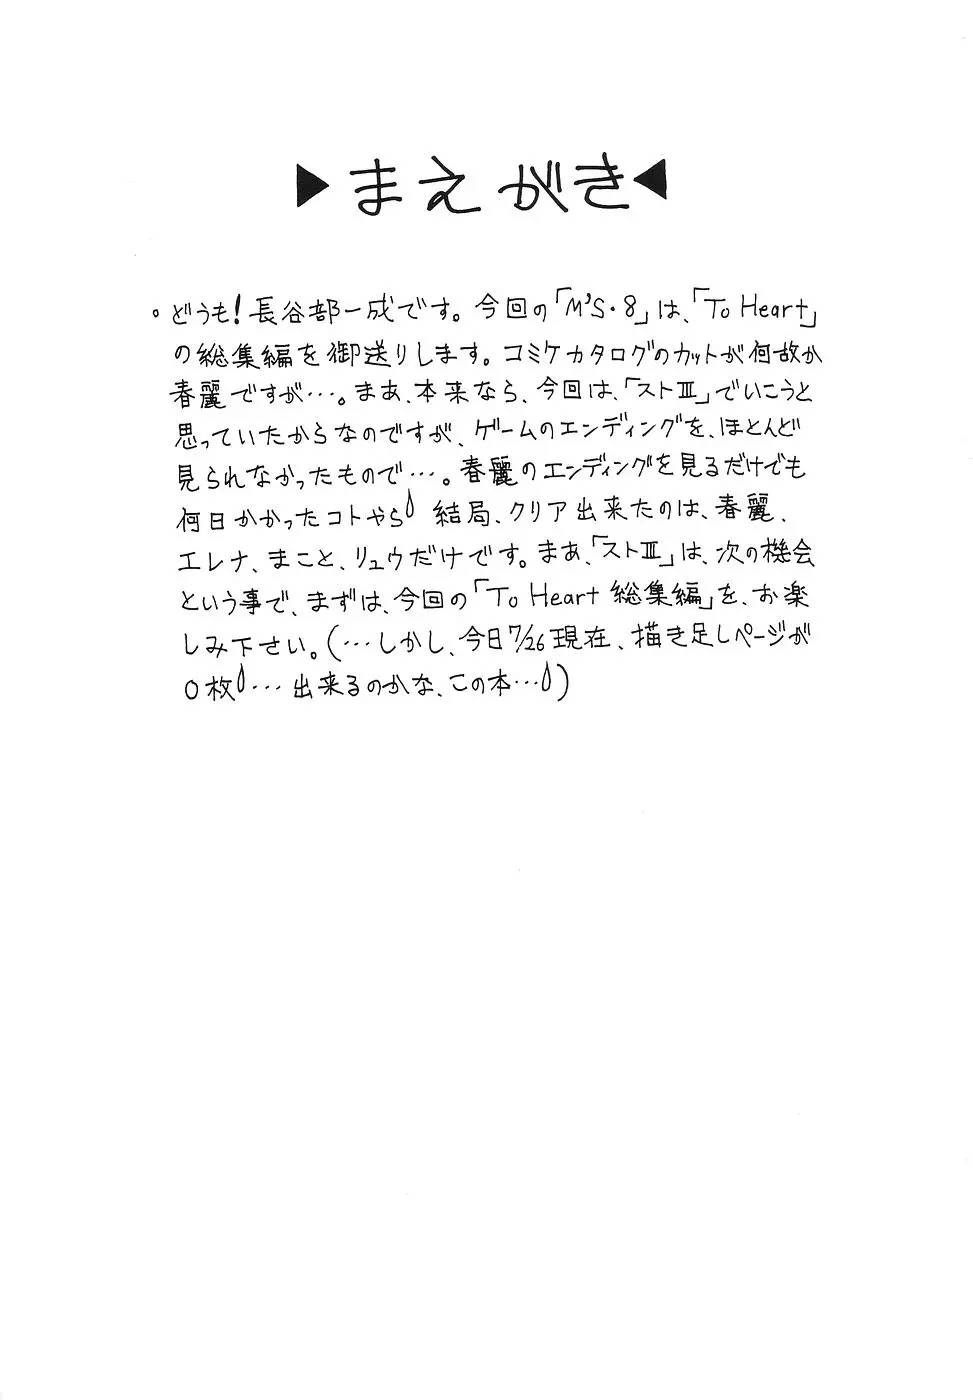 ▶まえがき◀
。どうも!長谷部一成です。今回の「M'S・8」は、「To Heart」
の総集編を御送りします。コミケカタログのカットが何故か
春麗ですが…。まあ、本来なら、今回は、「ストⅢ」でいこうと
思っていたからなのですが、ゲームのエンディングを、ほとんど
見られなかったもので…。春麗のエンディングを見るだけでも
何日かかったコトやら 結局、クリア出来たのは、春麗、
エレナ、まこと、リュウだけです。まあ、「ストⅢ」は、次の機会
という事で、まずは、今回の「To Heart 総集編」を、お楽
しみ下さい。(…しかし、今日7/26現在、描き足しページが
0枚…出来るのかな、この本…)